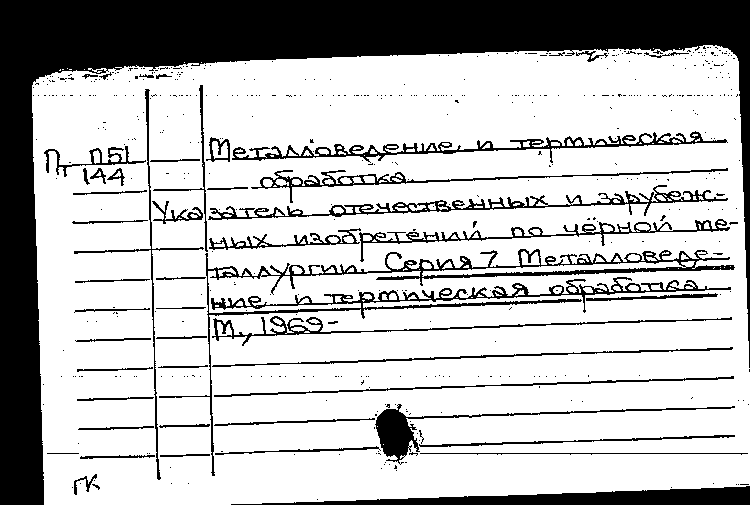 Пт П51
144
Металловедение и термическая
обработка.
Указатель отечественных и зарубеж-
ных изобретений по чёрной ме-
таллургии. Серия 7. Металловеде-
ние и термическая обработка.
М., 1969-
ГК